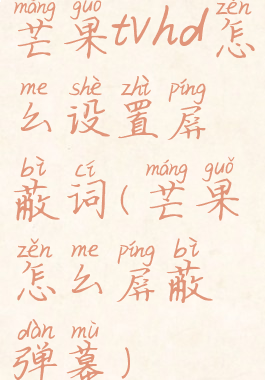 máng guǒ zěn
芒果tvhd怎
me shè zhì píng
么设置屏
bì cí máng guǒ
蔽词(芒果
zěn me píng bì
怎么屏蔽
dàn mù
弹幕)